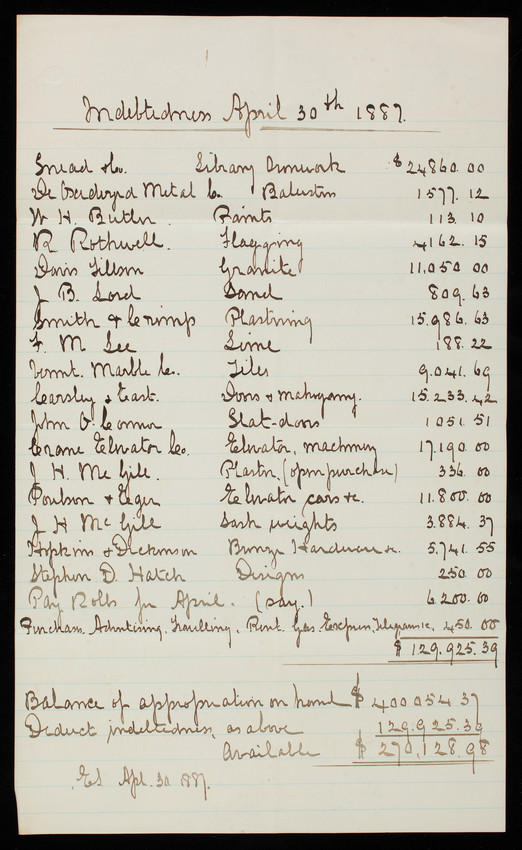 Indebtedness April 30th 1887.
Snead & Co. Library Ironwork $24860.00
De Oserdorqd Metal Co. Balusters 1577.12
W H. Butler Paints 113.10
R Rothwell. Flagging 4162.15
Davis Tillson Granite 11,050 00
J B. Lord Sand 809.63
Smith & Crimp Plastering 15,986.63
F. M Lee Lime 188.22
Vermt. Marble Co. Tiles 9.041.69
Cearsley & East. Doors & mahogany. 15.233.42
John O'Connor Slat-doors 1051.51
Crane Elevator Co. Elevator, machinery 17,190.00
J H. McGill. Plastr. (open purchase) 336.00
Poulson & Eger Elevator cars &c. 11.800.00
J H McGill Sash weights 3.884.37
Hopkins & Dickinson Bronze Hardware &c. 5.741.55
Stephen D. Hatch Designs 250.00
Pay Rolls for April. (say.) 6200.00
Purchases, Advertising, Travelling, Rent, Gas, Express, Telegrams &c. 450.00
$129.925.39
Balance of appropriation on hand $400054 37
Deduct indebtedness, as above 129.925.39
Available $270,128.98
Apl. 30 1887.